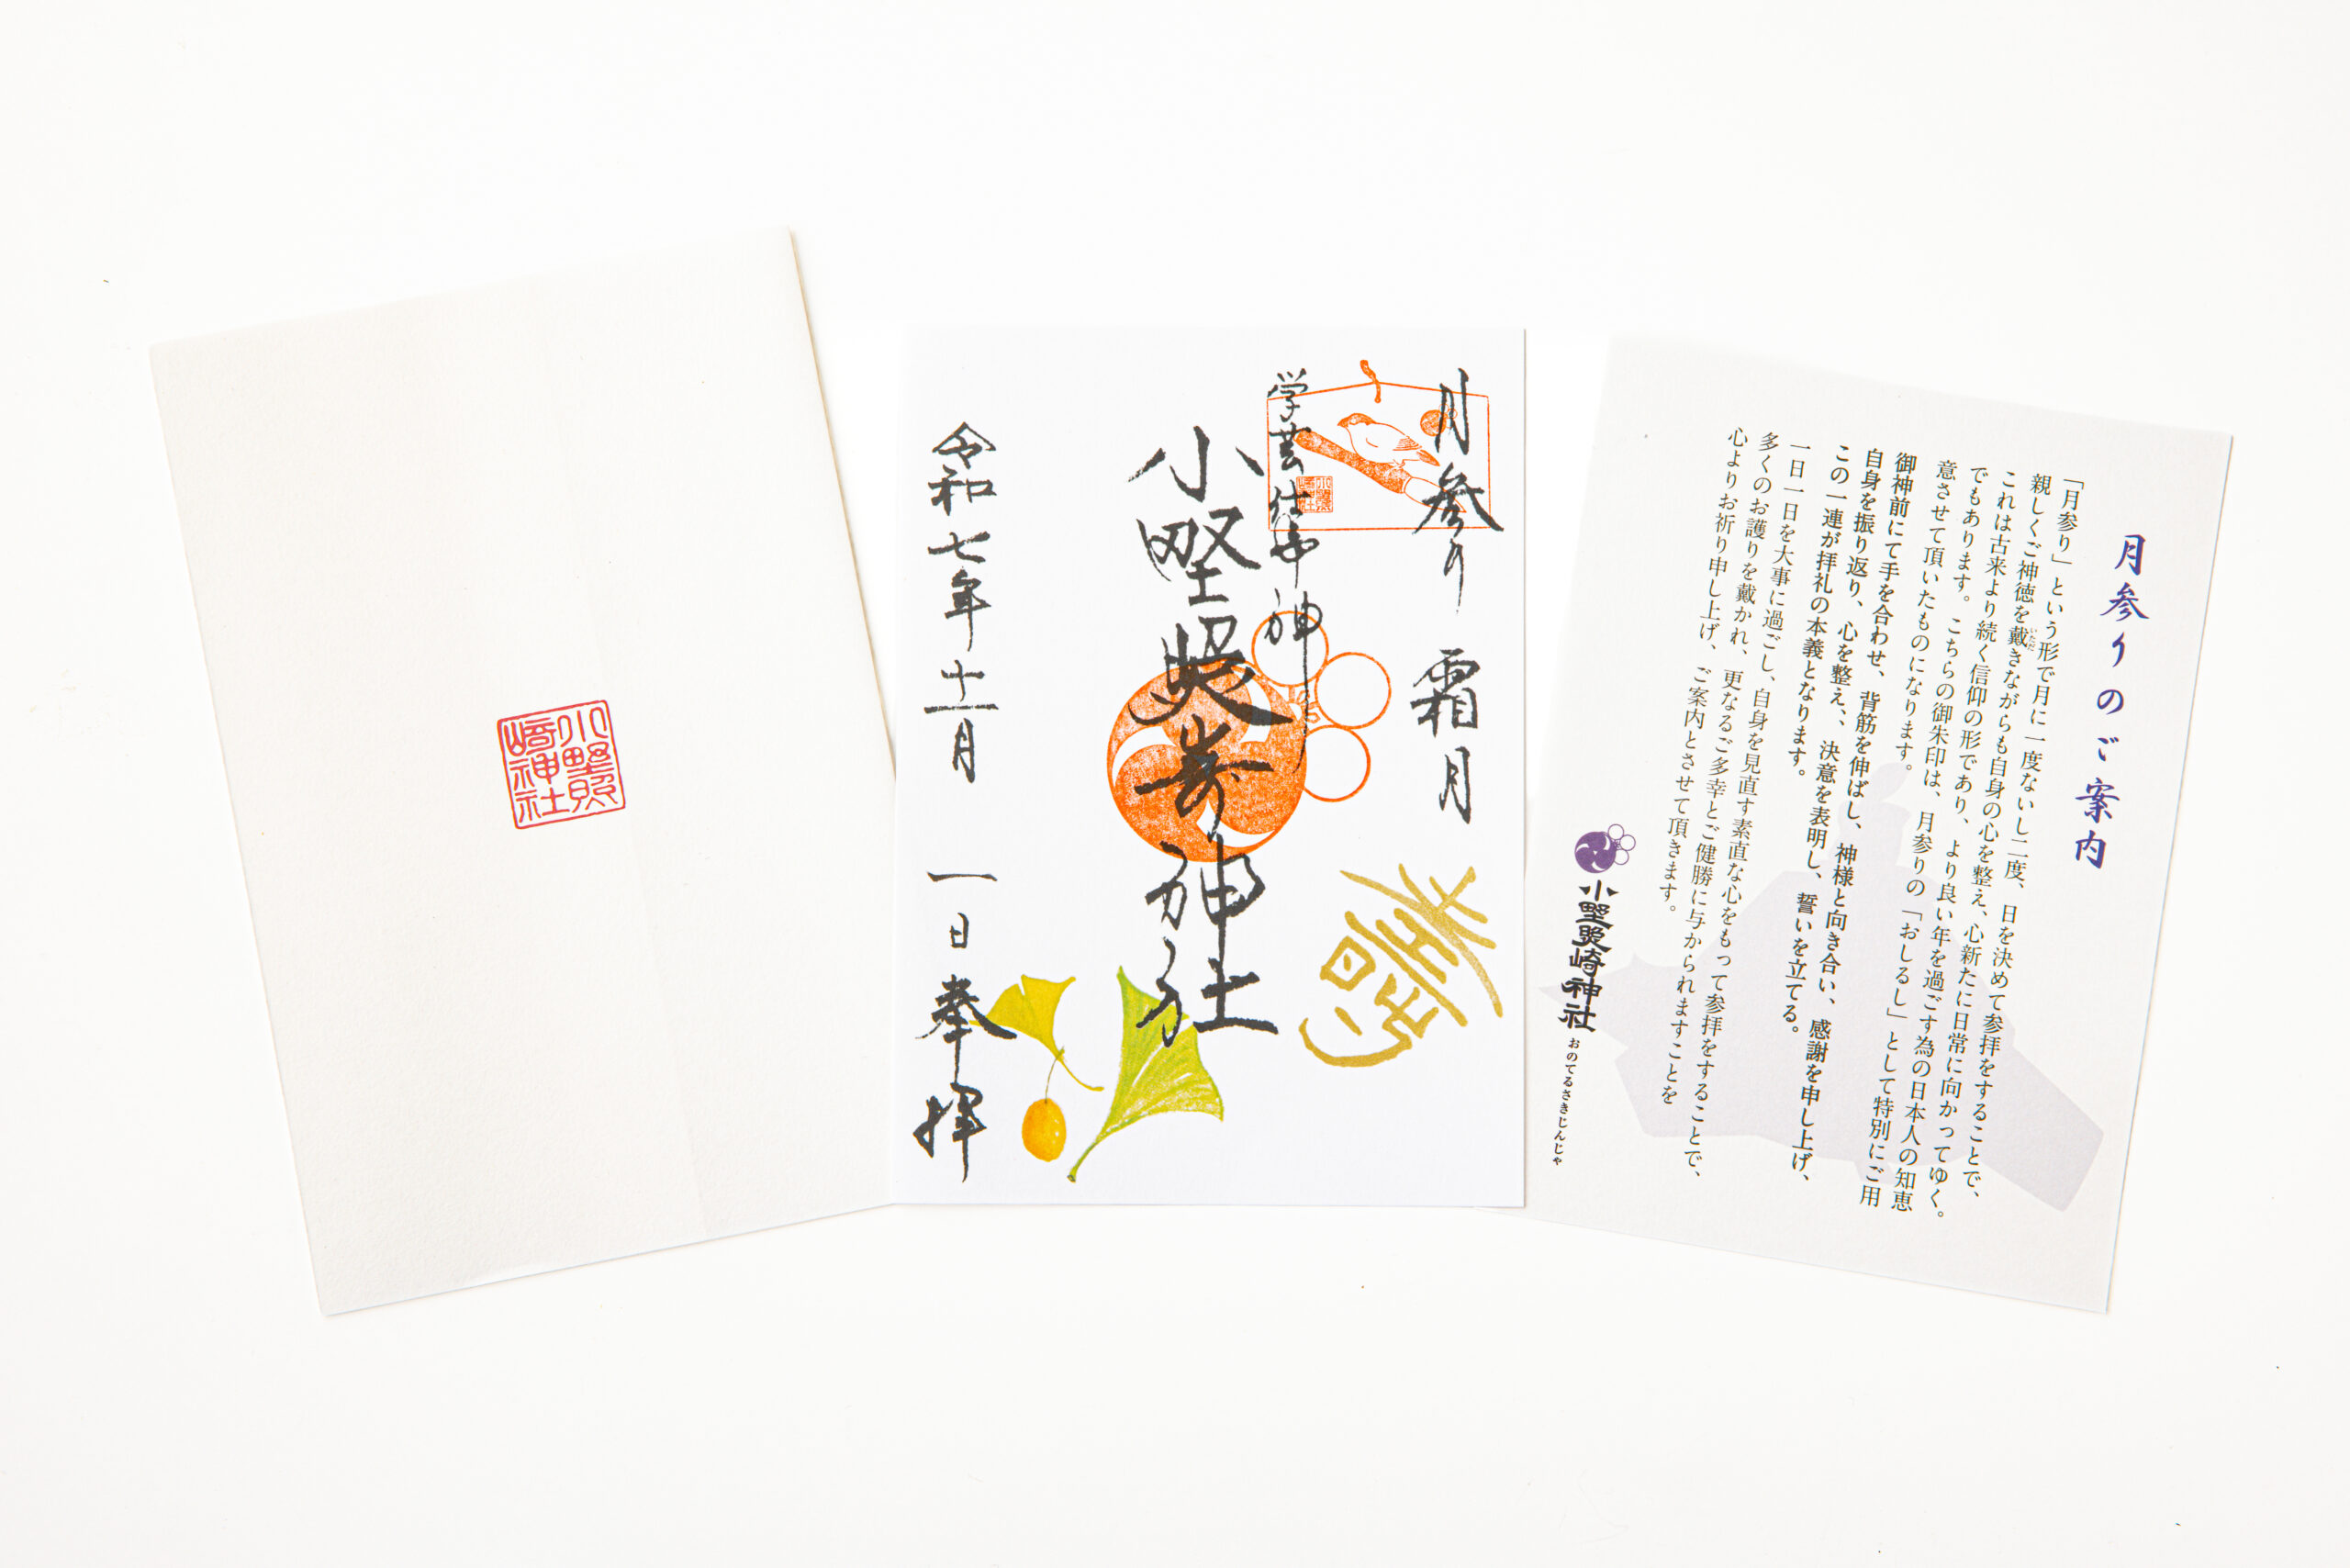 小野照
崎神社
月参り 霜月
学芸仕事神
小野照崎神社
令和七年十一月一日奉拝
月参りのご案内
「月参り」という形で月に一度ないし二度、日を決めて参拝をすることで、
親しくご神徳を戴きながらも自身の心を整え、心新たに日常に向かってゆく。
いただ
これは古来より続く信仰の形であり、より良い年を過ごす為の日本人の知恵
でもあります。こちらの御朱印は、月参りの「おしるし」として特別にご用
意させて頂いたものになります。
御神前にて手を合わせ、背筋を伸ばし、神様と向き合い、感謝を申し上げ、
自身を振り返り、心を整え、、決意を表明し、誓いを立てる。
この一連が拝礼の本義となります。
一日一日を大事に過ごし、自身を見直す素直な心をもって参拝をすることで、
多くのお護りを戴かれ、更なるご多幸とご健勝に与かられますことを
心よりお祈り申し上げ、ご案内とさせて頂きます。
小野照崎神社 おのてるさきじんじゃ